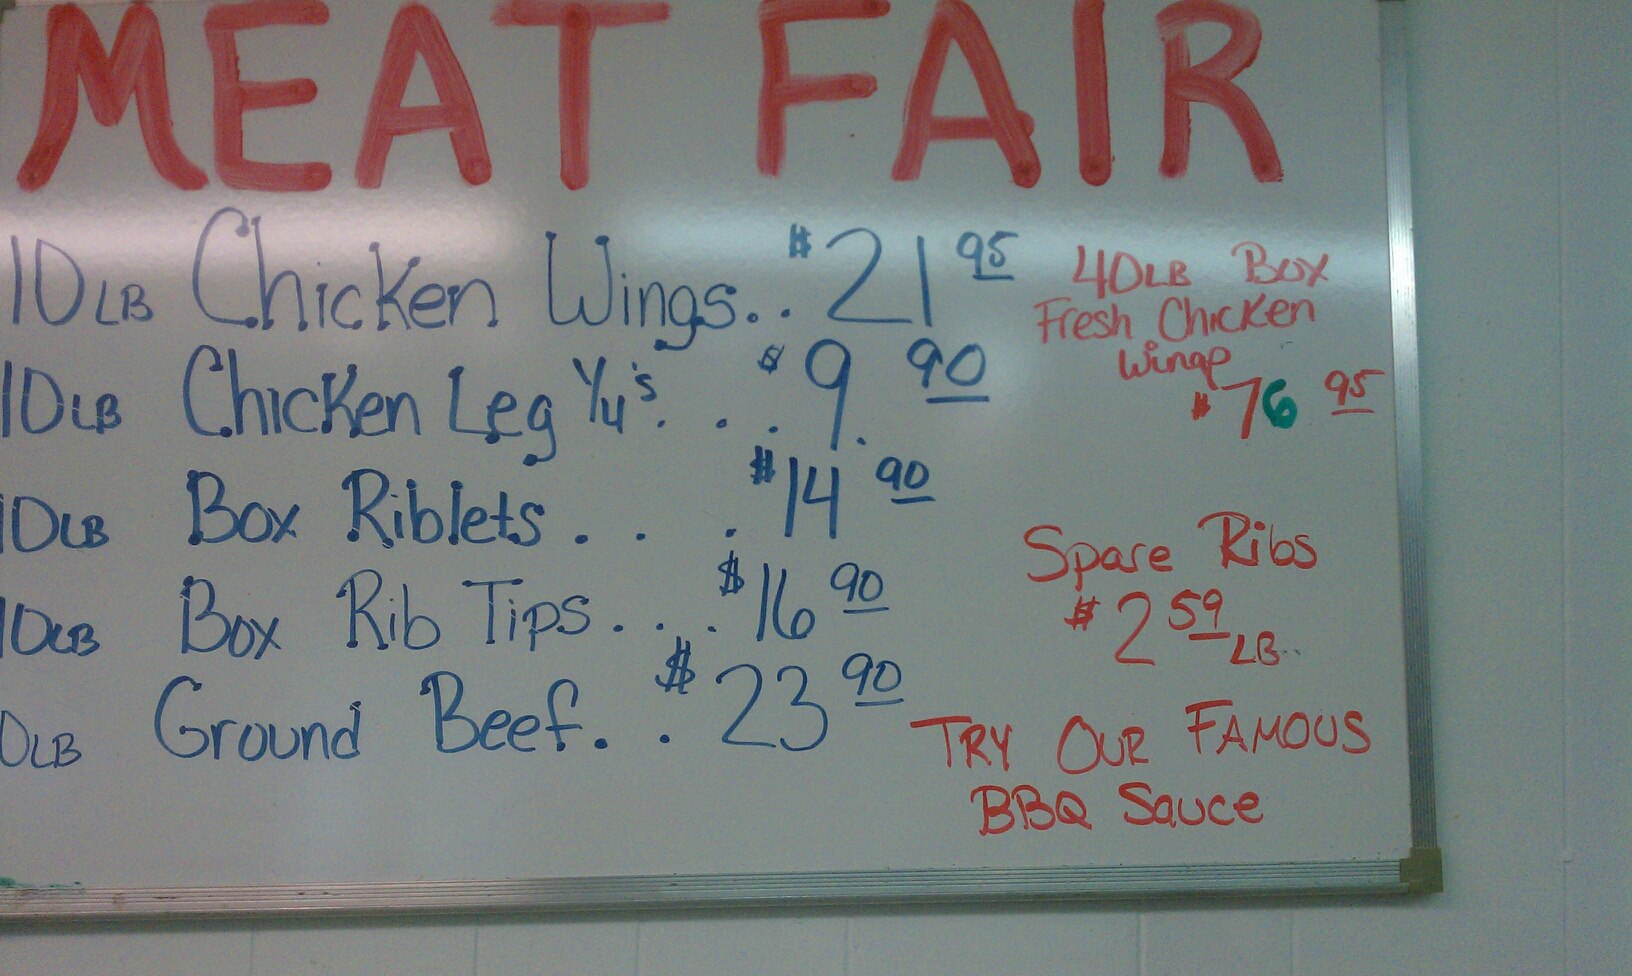 MEAT FAIR
10LB Chicken Wings.. $21 95
10LB Chicken Leg 1/4's. . . . $9. 90
10LB Box Riblets . . . $14 90
10LB Box Rib Tips . . . $16 90
0LB Ground Beef. . $23 90
40LB Box
Fresh Chicken
Wings
$76 95
Spare Ribs
$2 59 LB..
TRY OUR FAMOUS
BBQ Sauce